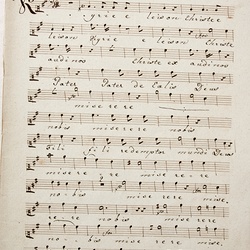 Kyrie e leison Christe e
leison Kyrie e leison Christe
audi nos Christe ex audi nos
Pater Pater de Celis Deus
miserere
nobis miserere nobis
fili fili redemptor mundi Deus
miserere miserere
nobis miserere mise,
rere nobis miserere
nobis miserere mise,